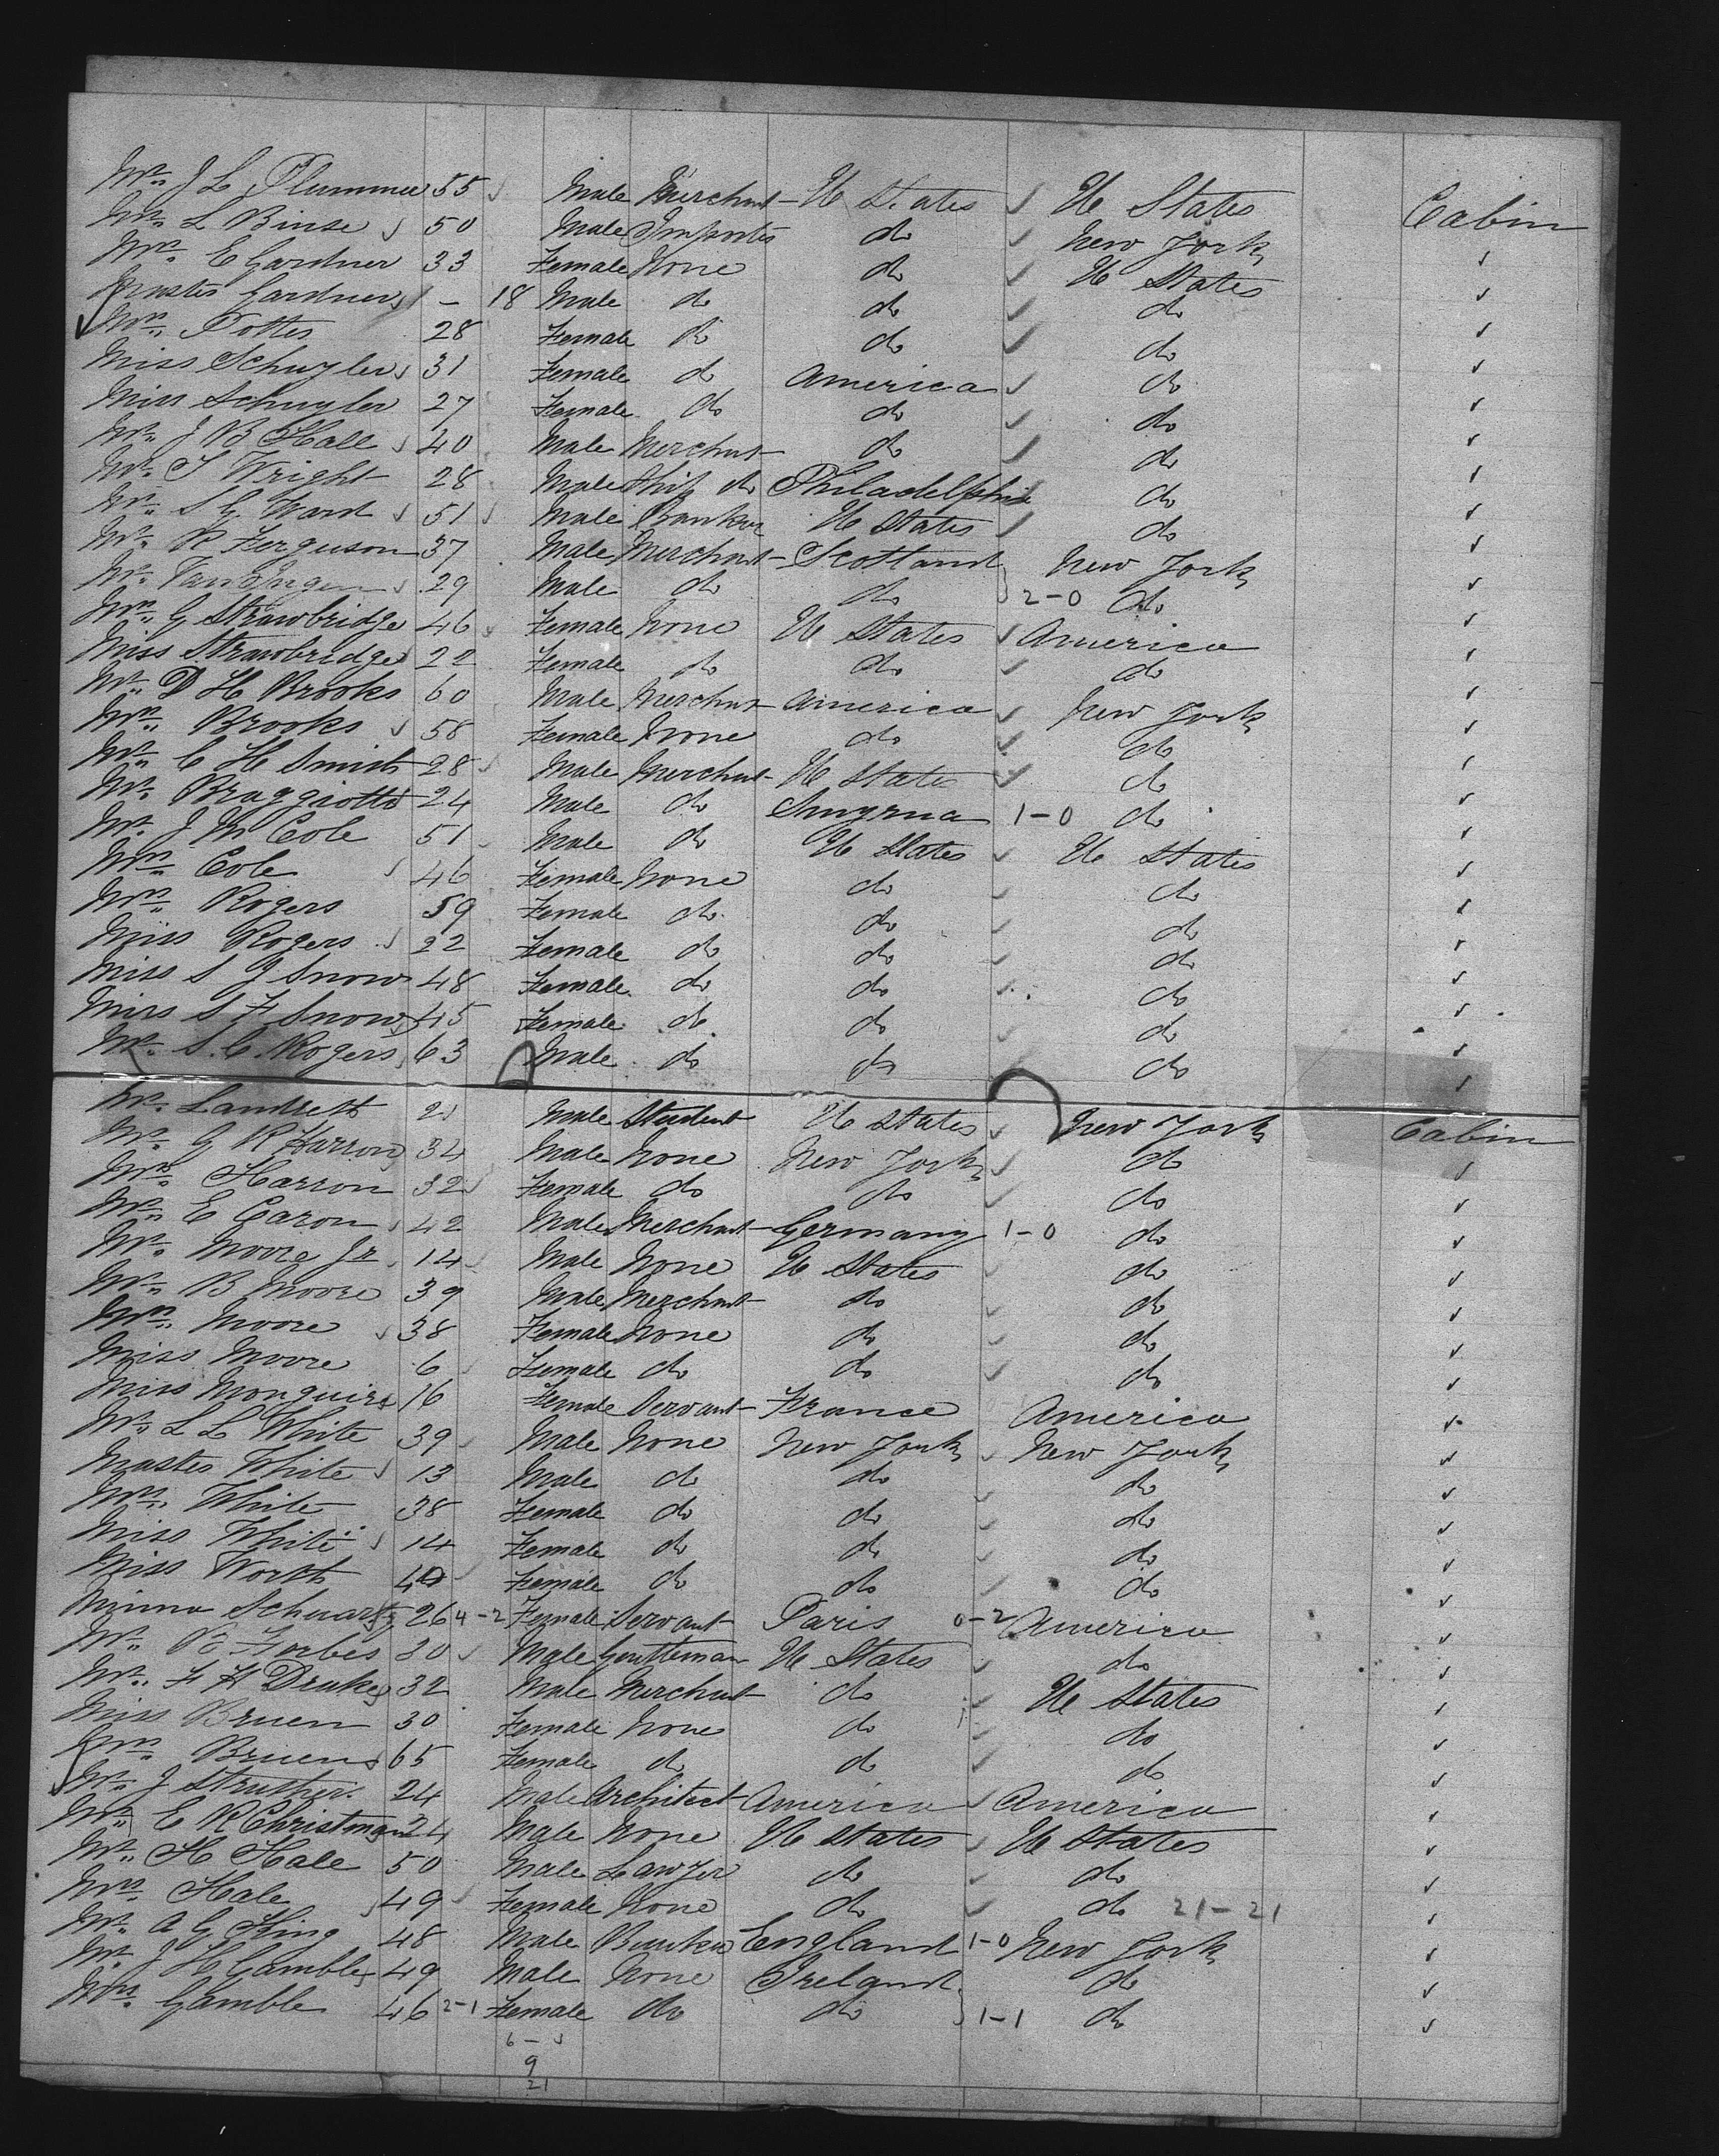 Mr. J L Plummer 55 Male Merchant U States U States Cabin
Mr. L Binse 50 Male Importer do New York
Mrs. E Gardner 33 Female None do U States
Master Gardner 1 - 18 Male do do do
Mrs. Potter 28 Female do do do
Miss Schuyler 31 Female do America do
Miss Schuyler 27 Female do do do
Mr. J B Hall 40 Male Merchant do do
Mr. T Wright 28 Male Ship do Philadelphia do
Mr. S G Ward 51 Male Banker U States do
Mr. R Ferguson 37 Male Merchant Scotland New York
Mr. Van Ingen 29 Male do do 2-0 do
Mrs. G Strawbridge 46 Female None U States America
Miss Strawbridge 22 Female do do do
Mr. D H Brooks 60 Male Merchant America New York
Mrs. Brooks 58 Female None do do
Mr. C H Smith 28 Male Merchant U States do
Mr. Braggiotti 24 Male do Smyrna 1-0 do
Mr. J M Cole 51 Male do U States U States
Mrs. Cole 46 Female None do do
Mrs. Rogers 59 Female do do do
Miss Rogers 22 Female do do do
Miss S J Snow 48 Female do do do
Miss S F Snow 45 Female do do do
Mr. S. C. Rogers 63 Male do do do
Mr. 21 Male Student U States New York Cabin
Mr. G R Harron 34 Male None New York do
Mrs. Harron 32 Female do do do
Mr. E Caron 42 Male Merchant Germany 1-0 do
Mr. Moore Jr 14 Male None U States do
Mr. B Moore 39 Male Merchant do do
Mrs. Moore 38 Female None do do
Miss Moore 6 Female do do do
Miss 16 Female Servant France America
Mr. L L White 39 Male None New York New York
Master White 13 Male do do do
Mrs. White 38 Female do do do
Miss White 14 Female do do do
Miss Worth 40 Female do do do
Minna Schwartz 26 4-2 Female Servant Paris 0-2 America
Mr. R Forbes 30 Male Gentleman U States do
Mr. F H Drake 32 Male Merchant do U States
Miss Bruen 30 Female None do do
Mrs. Bruen 65 Female do do do
Mr. J Struthers 24 Male Architect America America
Mr. E R Christman 24 Male None U States U States
Mr. H Hale 50 Male Lawyer do do
Mrs. Hale 49 Female None do do 21-21
Mr. A G King 48 Male Banker England 1-0 New York
Mr. J H Gamble 49 Male None Ireland do
Mrs. Gamble 46 2-1 Female do do 1-1 do
9
21